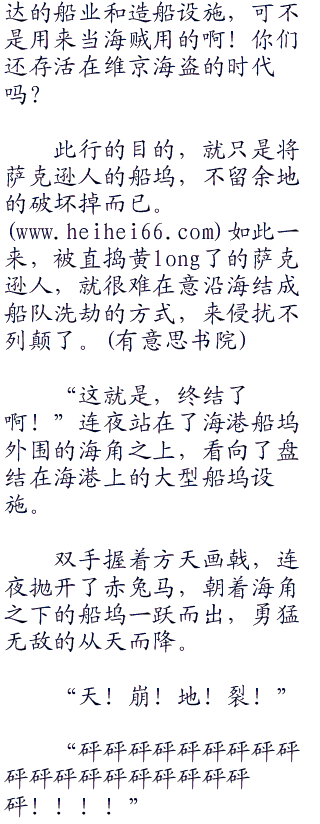 达的船业和造船设施，可不
是用来当海贼用的啊！你们
还存活在维京海盗的时代
吗？
此行的目的，就只是将
萨克逊人的船坞，不留余地
的破坏掉而已。
(www.heihei66.com)如此一
来，被直捣黄long了的萨克
逊人，就很难在意沿海结成
船队洗劫的方式，来侵扰不
列颠了。(有意思书院)
“这就是，终结了
啊！”连夜站在了海港船坞
外围的海角之上，看向了盘
结在海港上的大型船坞设
施。
双手握着方天画戟，连
夜抛开了赤兔马，朝着海角
之下的船坞一跃而出，勇猛
无敌的从天而降。
“天！崩！地！裂！”
“砰砰砰砰砰砰砰砰砰
砰砰砰砰砰砰砰砰砰砰
砰！！！！”